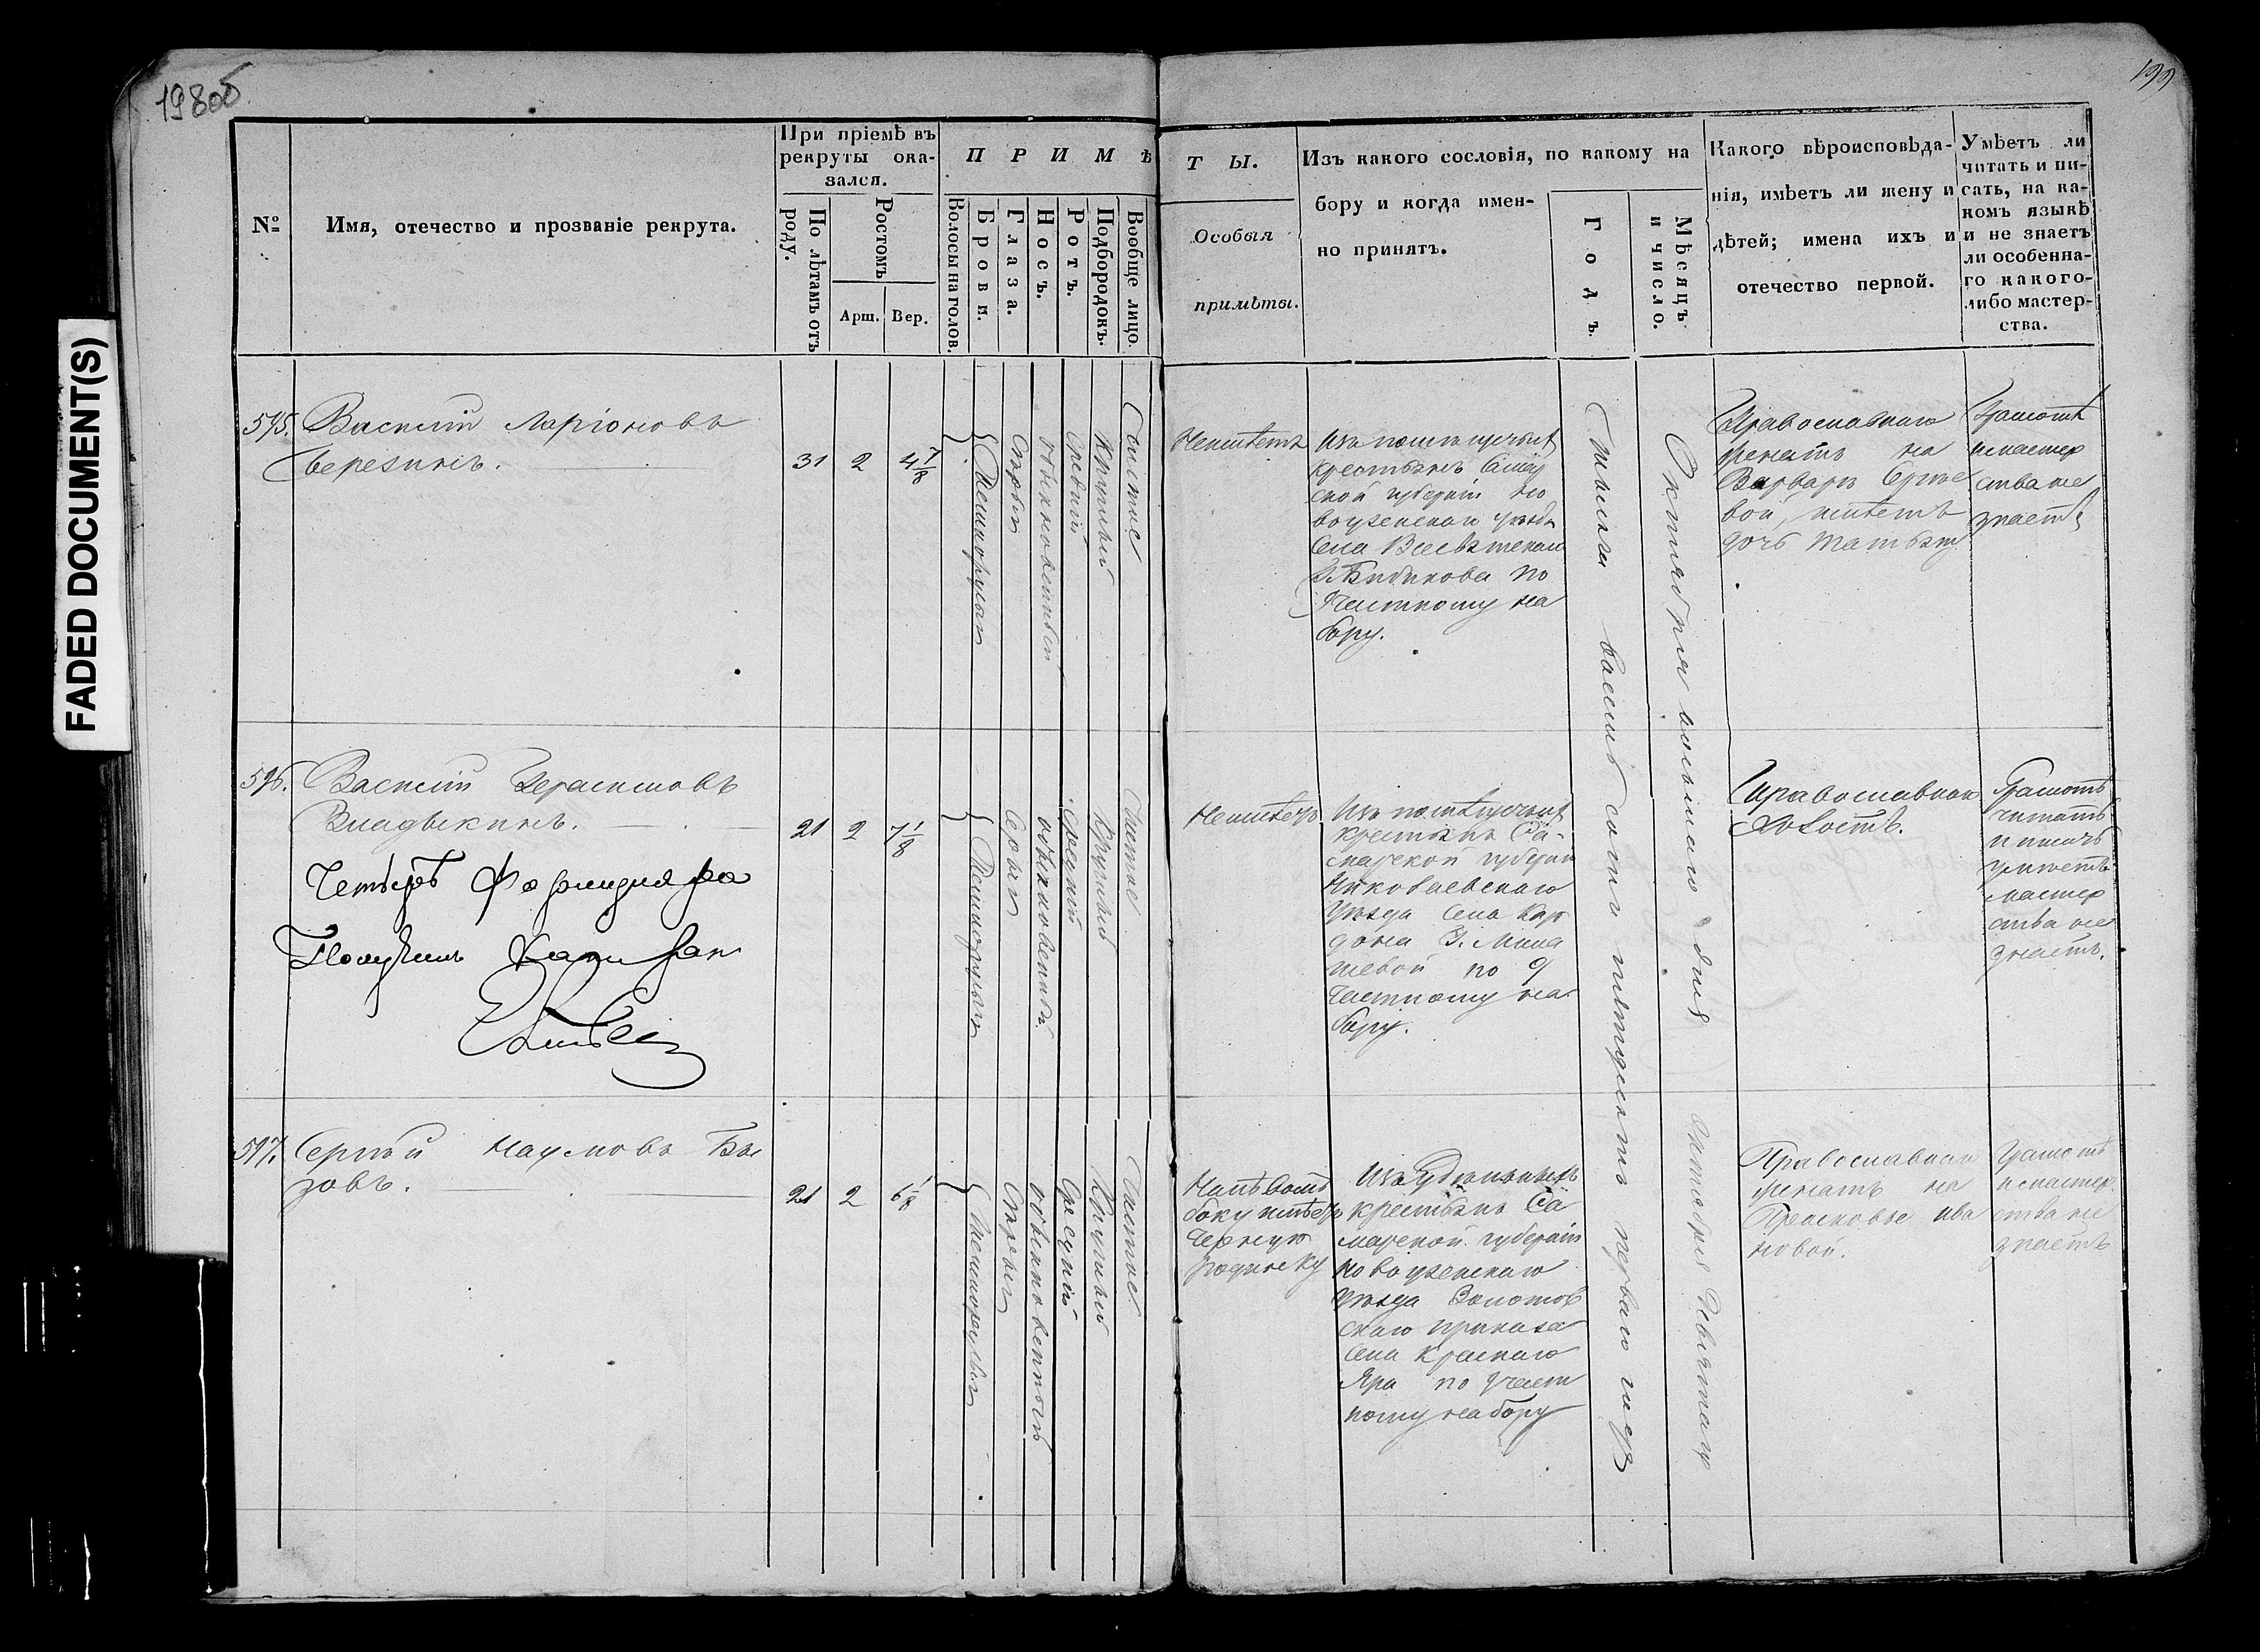 198об
199
FADED DOCUMENT(S)
№
Имя, отечество и прозваніе рекрута.
При пріемѣ въ
рекруты ока-
зался.
По лѣтамъ отъ
роду.
Ростомъ
Арш.
Вер.
П Р И М Ѣ
Волосы на голов.
Брови.
Глаза.
Носъ.
Ротъ.
Подбородокъ.
Вообще лицо.
Т Ы.
Особыя
примѣты.
Изъ какого сословія, по какому на
бору и когда имен-
но принятъ.
Годъ.
Мѣсяцъ
и число.
Какого вѣроисповѣда-
нія, имѣетъ ли жену и
дѣтей; имена ихъ и
отечество первой.
Умѣетъ ли
читать и пи-
сать, на ка-
комъ языкѣ
и не знаетъ
ли особенна-
го какого-
либо мастер-
ства.
595.
Василій Ларіоновъ
Березинъ.
31
2
4 7/8
Темнорусые
Сѣрые
обыкновенный
Средній
Круглый
Чистое
Неимѣетъ
Изъ помѣщичьихъ
крестьянъ
ской губерніи Но
воузенскаго уѣзда
Села
Г. Бибикова по
Частному на
бору.
Тысяча восемь сотъ пятьдесятъ перваго года
Октября дня
Православнаго
женатъ на
Варварѣ
вой, имѣетъ
дочь Татьяну
Грамотѣ
и мастер
ства не
знаетъ
596.
Василій Герасимовъ
Владыкинъ.
21
2
7 1/8
Темнорусые
Сѣрые
обыкновенный
Средній
Круглый
Чистое
Неимѣетъ
Изъ помѣщичьихъ
крестьянъ Са-
марской губерніи
Николаевскаго
Уѣзда Села Кор
дона Г.
шевой по 9
Частному на
бору.
Православнаго
Холостъ.
Грамотѣ
читать
и писать
умѣетъ
мастер
ства не
знаетъ.
597.
Сергѣй Наумовъ
зовъ.
21
2
6 1/8
Темнорусые
Сѣрые
обыкновенный
Средній
Круглый
Чистое
На лѣвомъ
боку имѣетъ
Черную
родинку
Изъ Удѣльныхъ
крестьянъ Са
марской губерніи
Новоузенскаго
Уѣзда Золотов
скаго приказа
Села Краснаго
Яра по Част
ному набору
Октября Девятаго
Православнаго
женатъ на
Прасковье Ива
новой.
Грамотѣ
и мастер
ства не
знаетъ